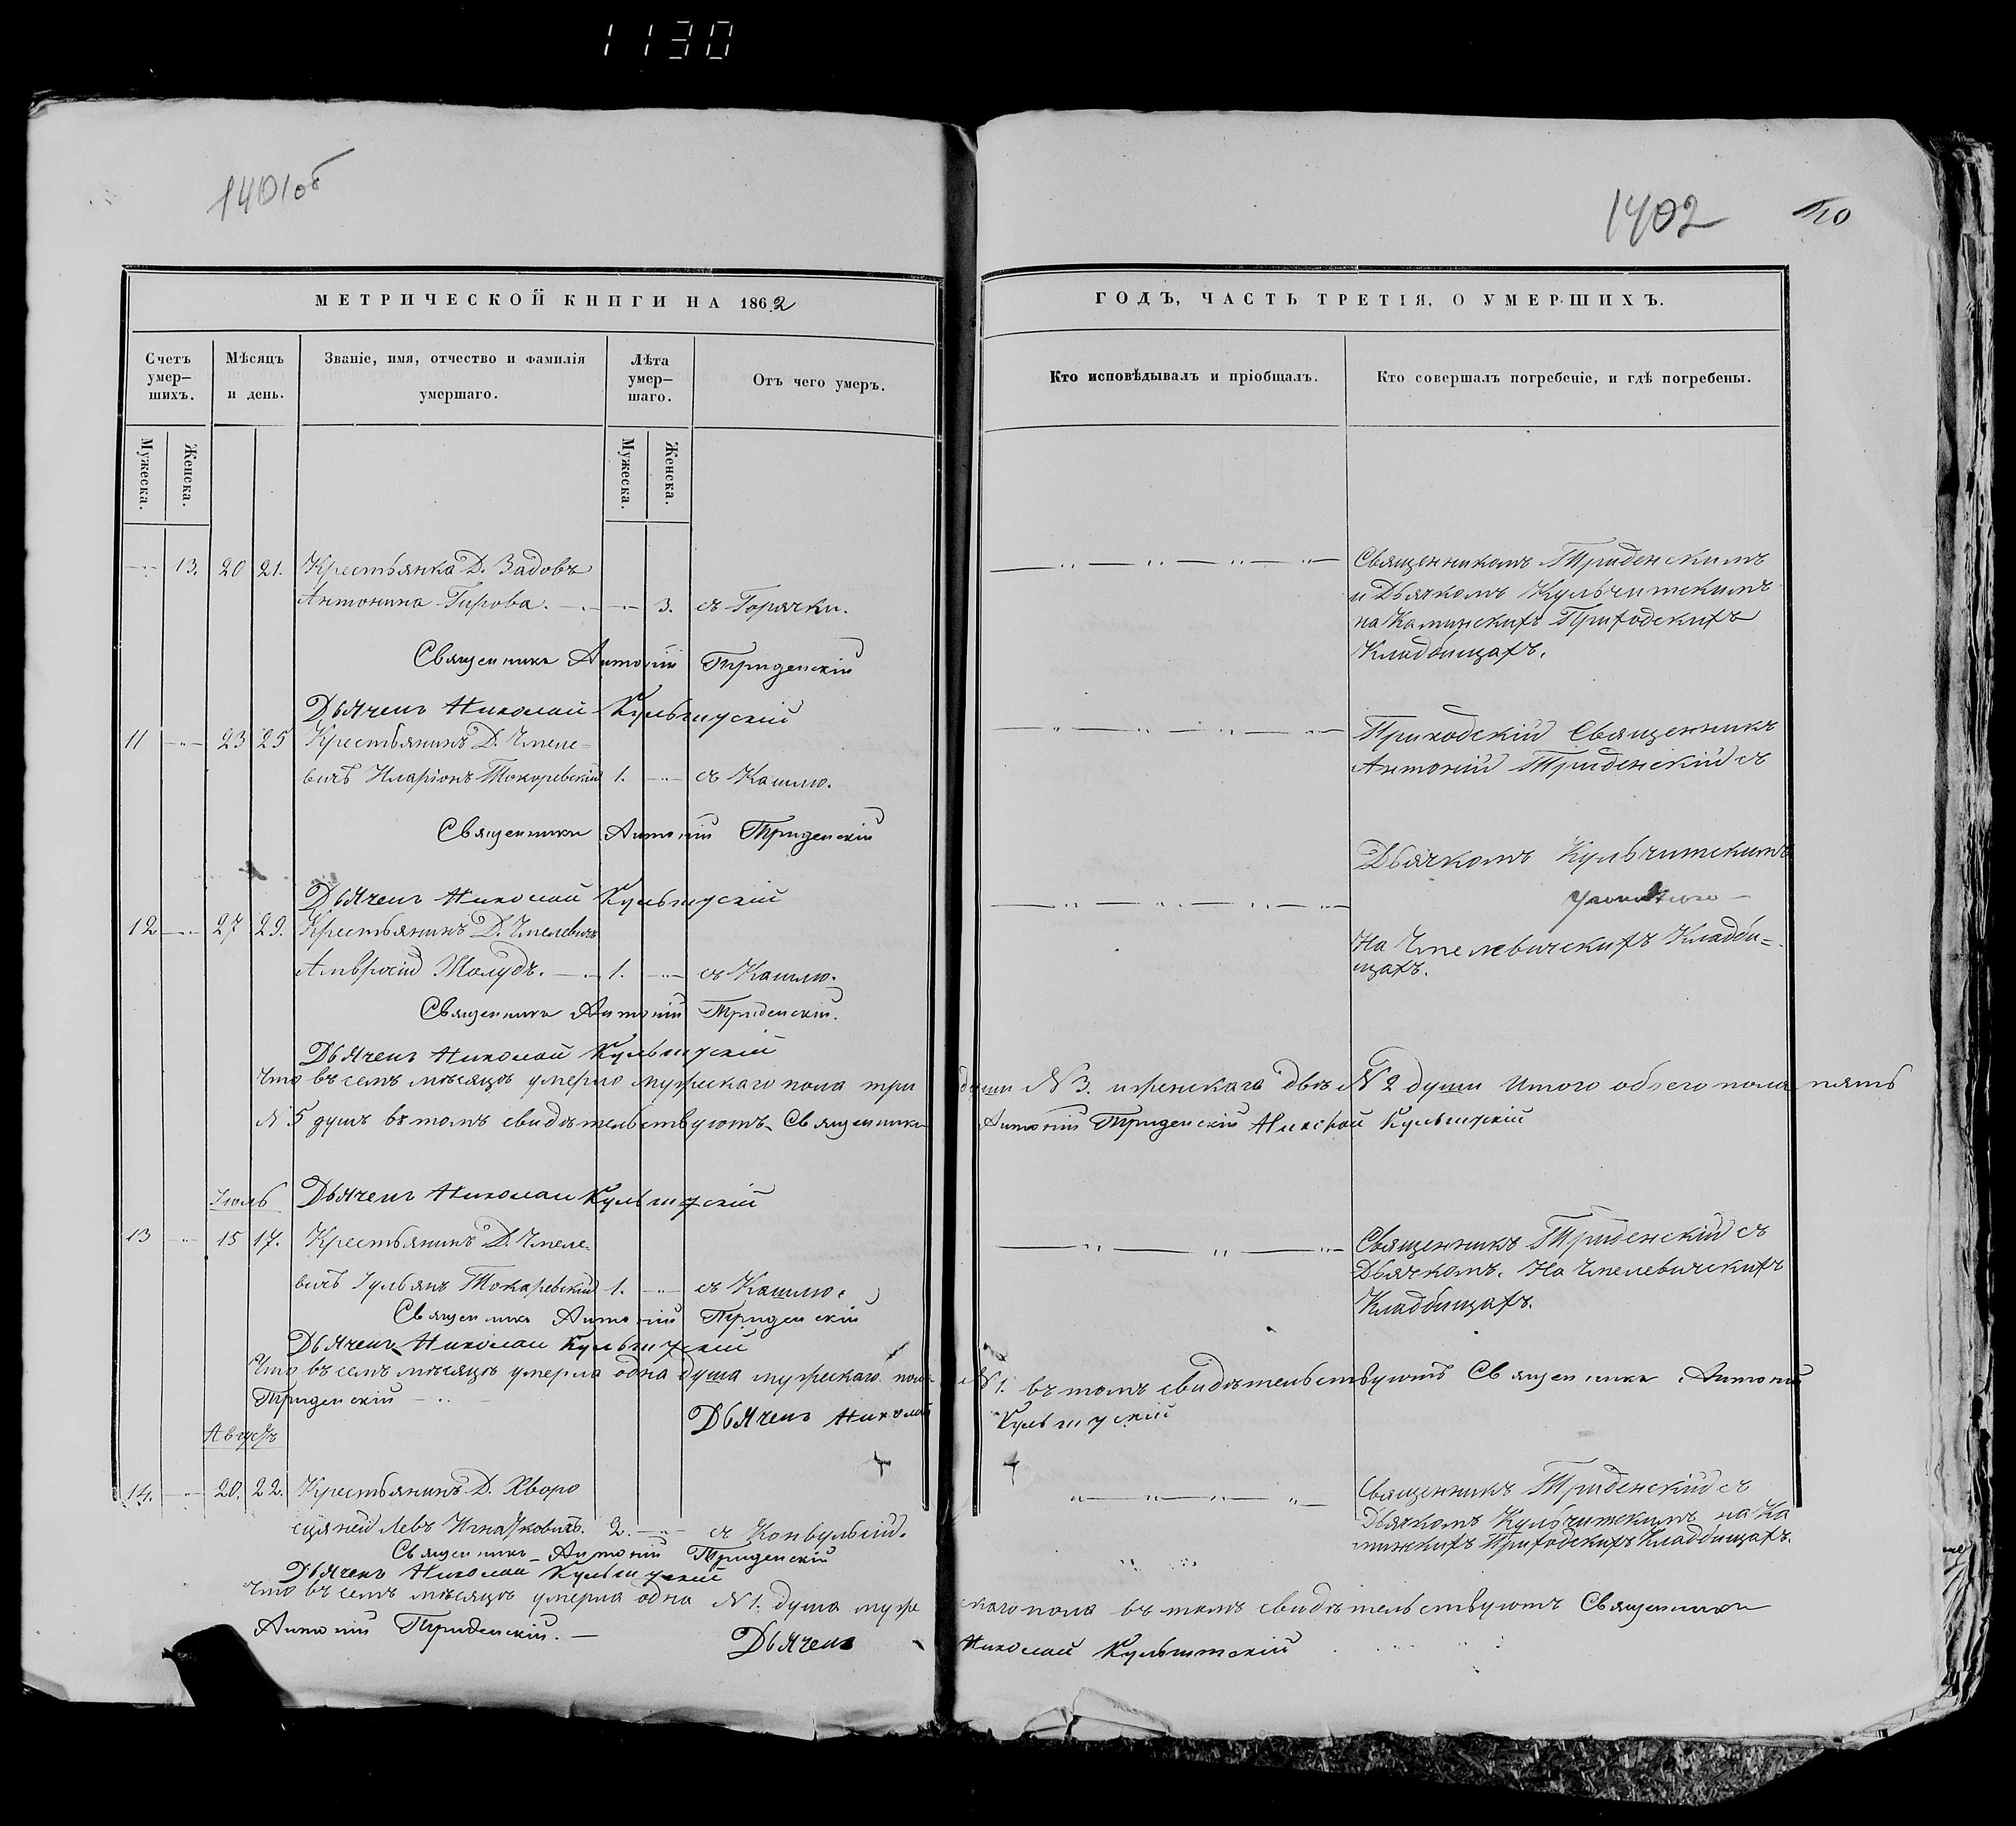 1130
1401об
1402
МЕТРИЧЕСКОЙ КНИГИ НА 1862
ГОДЪ, ЧАСТЬ ТРЕТІЯ, О УМЕРШИХЪ.
Счетъ умер-шихъ.
Мѣсяцъ и день.
Званіе, имя, отчество и фамилія умершаго.
Лѣта умер-шаго.
Отъ чего умеръ.
Кто исповѣдывалъ и пріобщалъ.
Кто совершалъ погребеніе, и гдѣ погребены.
Мужеска.
Женска.
Мужеска.
Женска.
13. 20 21. Крестьянка Д. Задовъ
Антонина Гирова. 3. съ Горячки.
Священникъ Антоній Триденскій
Дьячекъ Николай Кульчицкій
Священникомъ Триденскимъ
и Дьячкомъ Кульчитскимъ
на Каминскихъ Приходскихъ
Кладбищахъ.
11 23 25 Крестьянинъ Д. Чмеле-
вичъ Иларіонъ Токоревскій 1. съ Кашлю.
Священникъ Антоній Триденскій
Дьячекъ Николай Кульчицкій
Приходскій Священникъ
Антоній Триденскій съ
Дьячкомъ Кульчитскимъ
12 27 29. Крестьянинъ Д. Чмелевичъ
Амвросій Жолудь. 1. съ Кашлю.
Священникъ Антоній Триденскій.
Дьячекъ Николай Кульчицкій
На Чмелевичскихъ Кладби=
щахъ.
Что въ семъ мѣсяцѣ умерло мужескаго пола три души N 3. и женскаго двѣ N 2 души Итого обоего пола пять
N 5 душъ въ томъ свидѣтельствуютъ Священникъ Антоній Триденскій Николай Кульчицкій
Дьячекъ Николай Кульчицкій
Іюль
13 15 17. Крестьянинъ Д. Чмеле-
вичъ Іульянъ Токаревскій 1. съ Кашлю.
Священникъ Антоній Триденскій
Дьячекъ Николай Кульчицкій
Священникъ Триденскій съ
Дьячкомъ. На Чмелевичскихъ
Кладбищахъ.
Что въ семъ мѣсяцѣ умерла одна душа мужескаго пола N 1. въ томъ свидѣтельствуютъ Священникъ Антоній
Триденскій
Дьячекъ Николай Кульчицкій
Августъ
14. 20. 22. Крестьянинъ Д. Хворо
сцяней Левъ Игнатковичъ. 2. съ Конвульсій.
Священникъ Антоній Триденскій
Дьячекъ Николай Кульчицкій
Священникъ Триденскій съ
Дьячкомъ Кульчитскимъ на Ка
минскихъ Приходскихъ Кладбищахъ.
Что въ семъ мѣсяцѣ умерла одна N 1. душа мужескаго пола въ томъ свидѣтельствуютъ Священникъ
Антоній Триденскій.
Дьячекъ Николай Кульчитскій